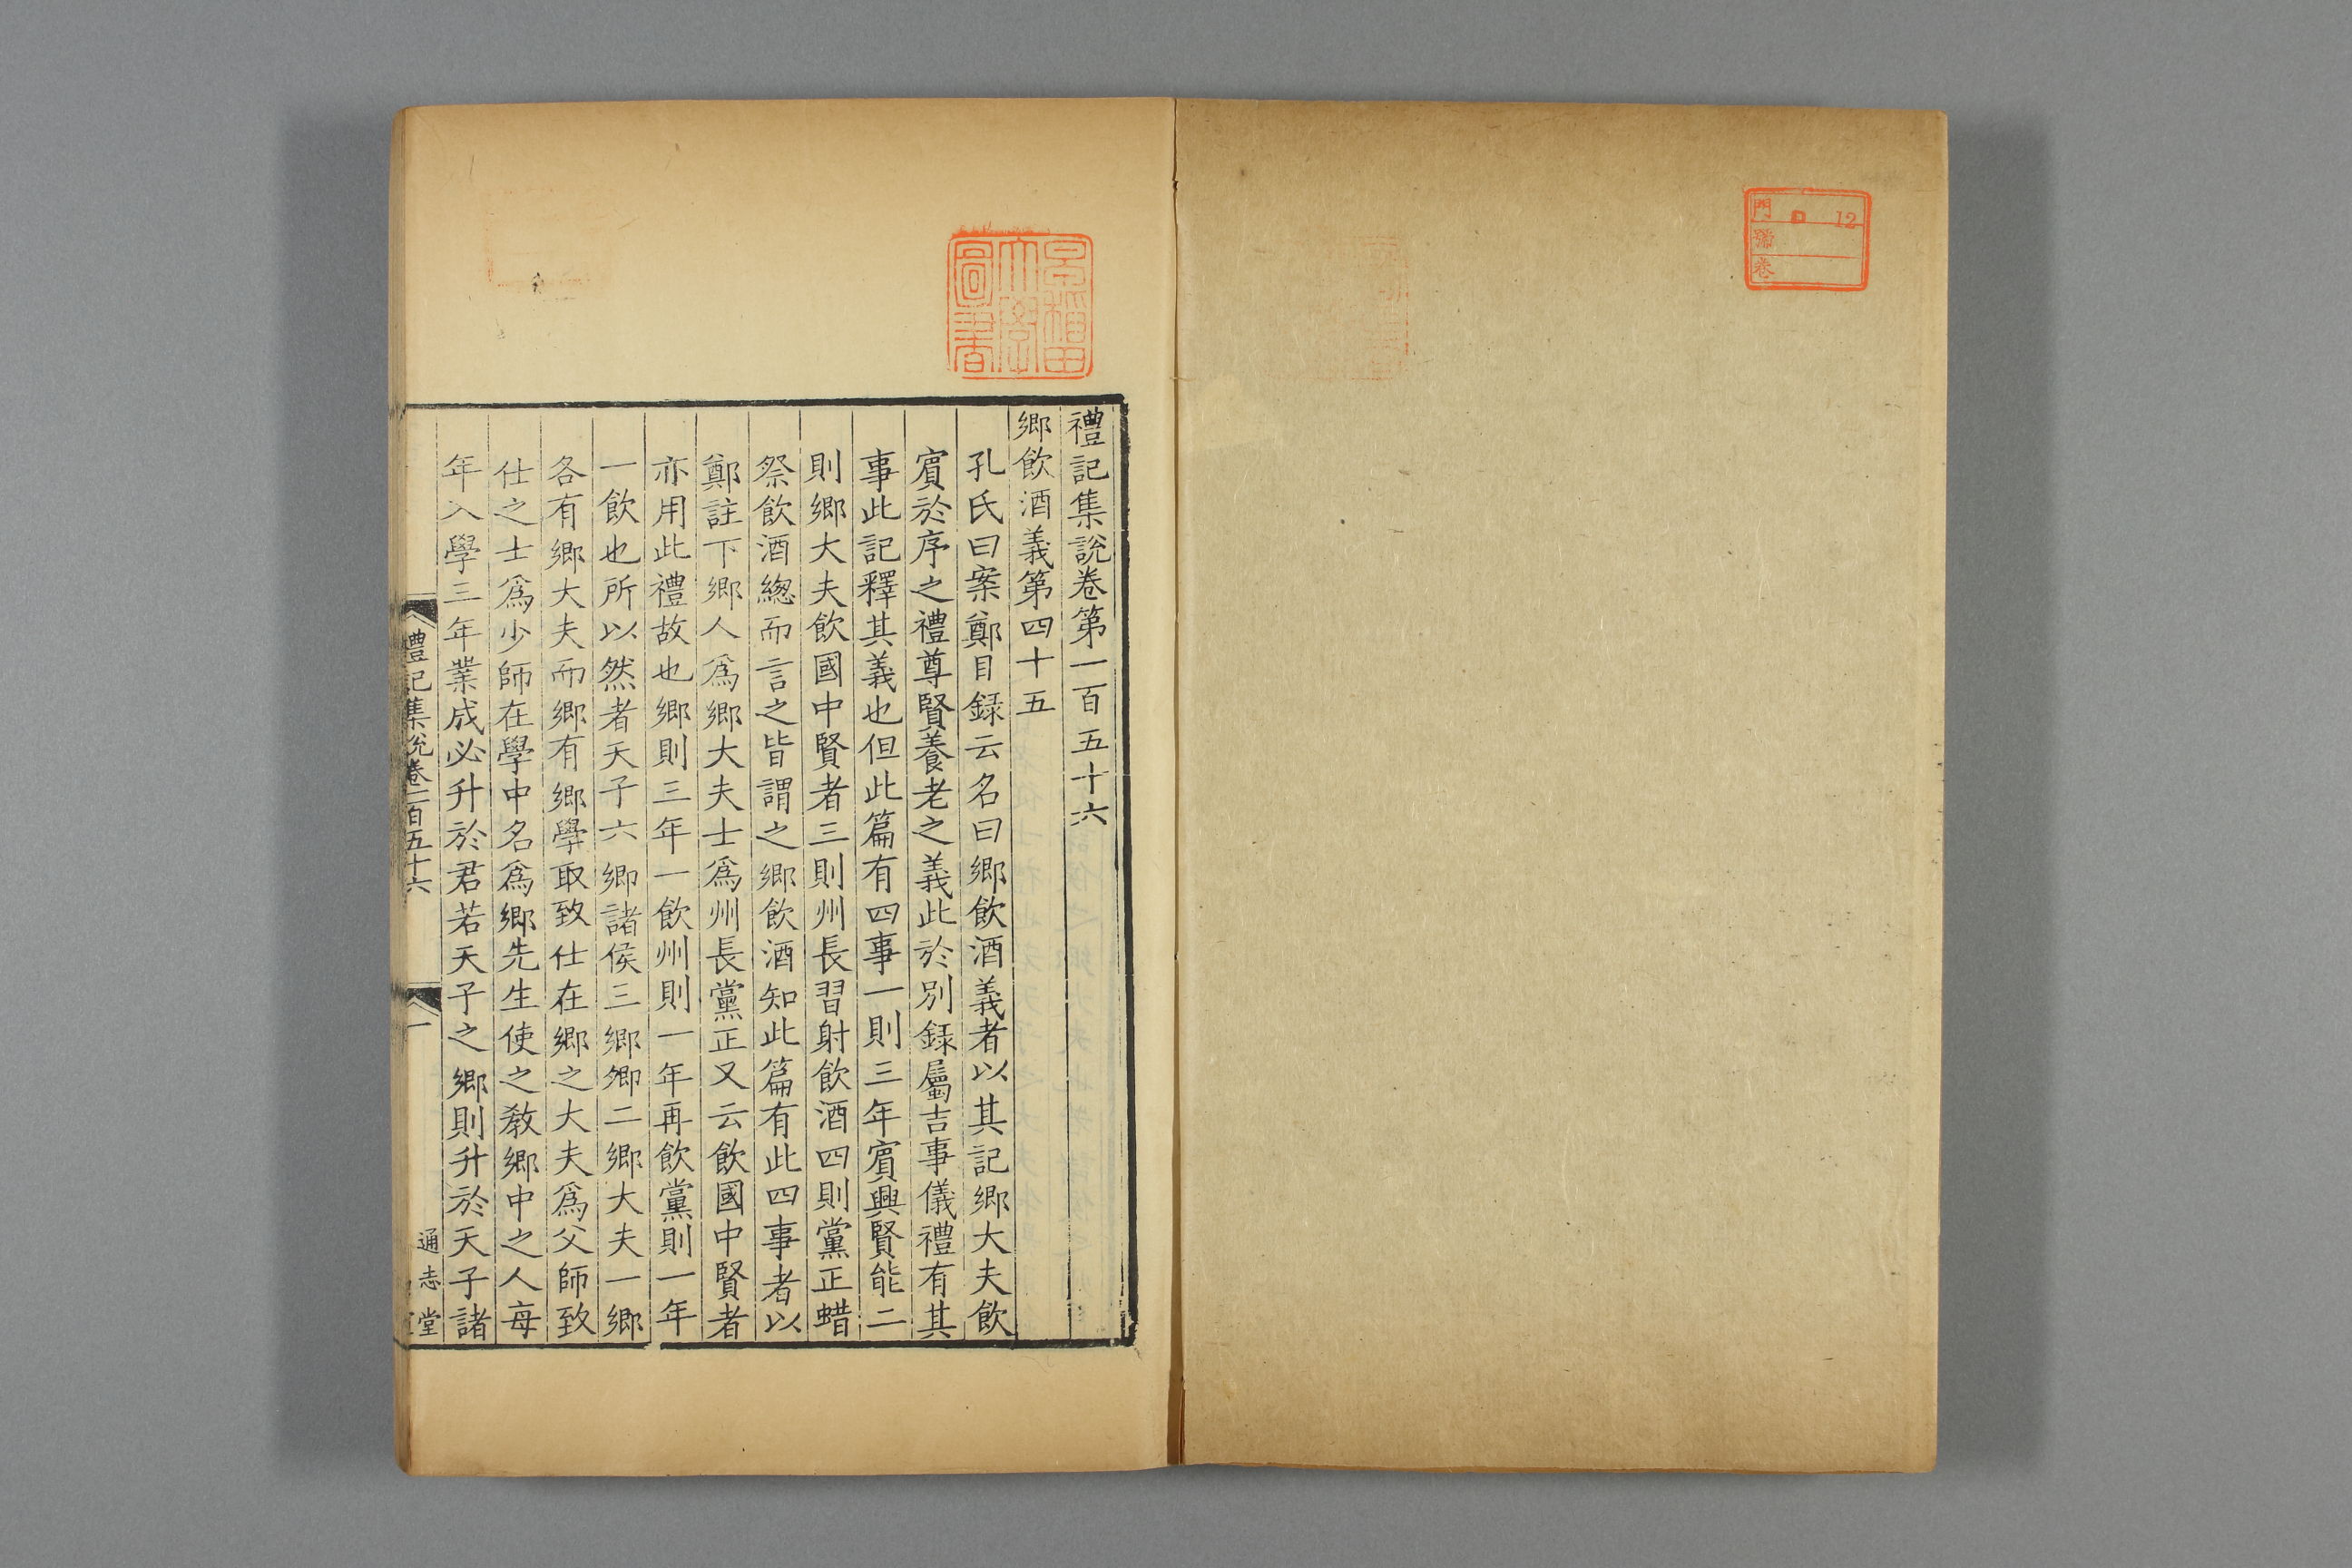 門 口 12
號
卷
早稲田
大學
圖書
禮記集說卷第一百五十六
鄉飲酒義第四十五
孔氏曰案鄭目録云名曰鄉飲酒義者以其記鄉大夫飲
賔於序之禮尊賢養老之義此於別録屬吉事儀禮有其
事此記釋其義也但此篇有四事一則三年賔興賢能二
則鄉大夫飲國中賢者三則州長習射飲酒四則黨正蜡
祭飲酒緫而言之皆謂之鄉飲酒知此篇有此四事者以
鄭註下鄉人爲鄉大夫士爲州長黨正又云飲國中賢者
亦用此禮故也鄉則三年一飲州則一年再飲黨則一年
一飲也所以然者天子六鄉諸侯三鄉卿二鄉大夫一鄉
各有鄉大夫而鄉有鄉學取致仕在鄉之大夫爲父師致
仕之士爲少師在學中名爲鄉先生使之教鄉中之人每
年入學三年業成必升於君若天子之鄉則升於天子諸
禮記集說卷一百五十六 一 通志堂